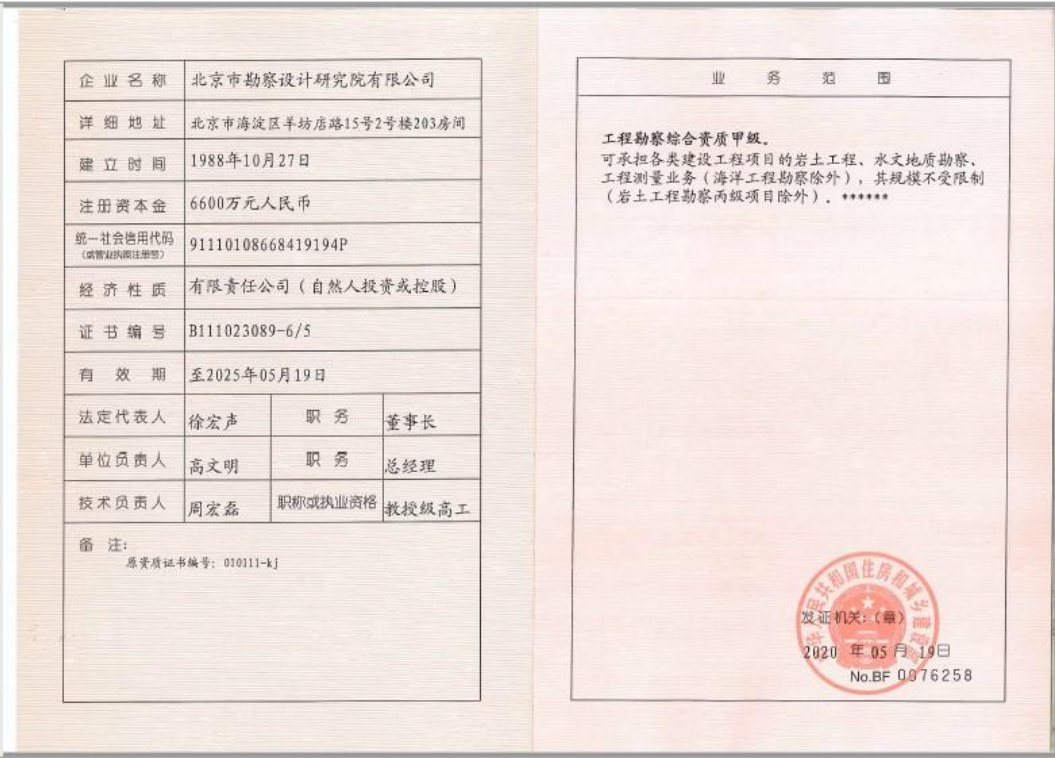 企业名称 北京市勘察设计研究院有限公司
详细地址 北京市海淀区羊坊店路15号2号楼203房间
建立时间 1988年10月27日
注册资本金 6600万元人民币
统一社会信用代码 91110108668419194P
（或营业执照注册号）
经济性质 有限责任公司（自然人投资或控股）
证书编号 B111023089-6/5
有效期 至2025年05月19日
法定代表人 徐宏声 职务 董事长
单位负责人 高文明 职务 总经理
技术负责人 周宏磊 职称或执业资格 教授级高工
备注：
原资质证书编号：010111-kj
业务范围
工程勘察综合资质甲级。
可承担各类建设工程项目的岩土工程、水文地质勘察、
工程测量业务（海洋工程勘察除外），其规模不受限制
（岩土工程勘察丙级项目除外）。******
中华人民共和国住房和城乡建设部
发证机关：（章）
2020 年 05 月 19日
No.BF 0076258